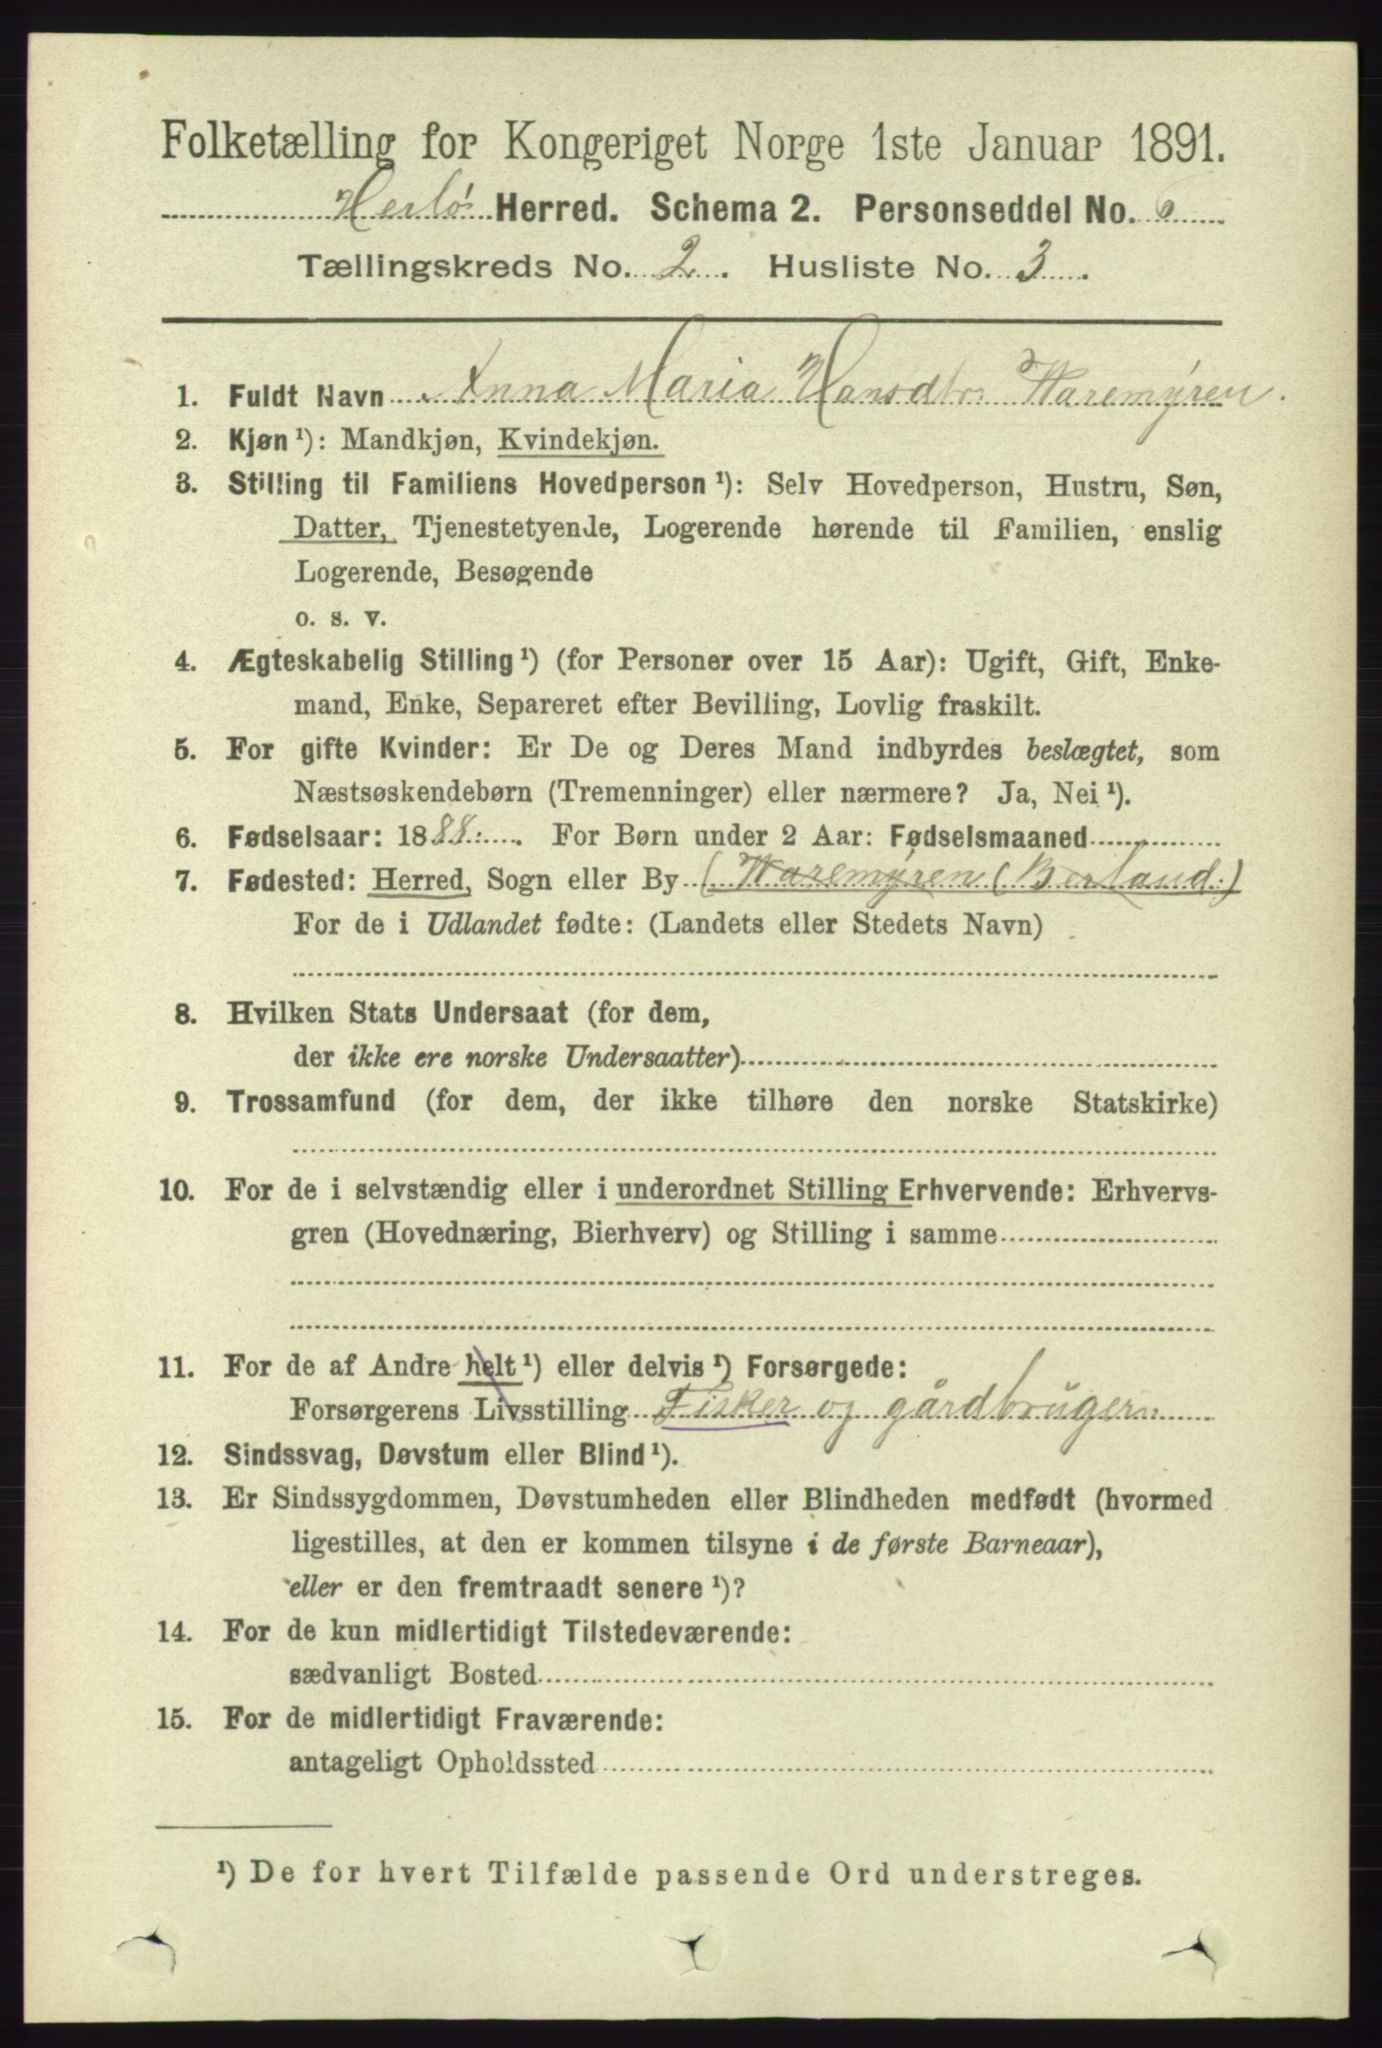 Folketælling for Kongeriget Norge 1ste Januar 1891.
Herlø Herred. Schema 2. Personseddel No. 6
Tællingskreds No. 2. Husliste No. 3.
1. Fuldt Navn Anna Maria Hansdtr Waremyren.
2. Kjøn ¹): Mandkjøn, Kvindekjøn.
3. Stilling til Familiens Hovedperson ¹): Selv Hovedperson, Hustru, Søn,
Datter, Tjenestetyende, Logerende hørende til Familien, enslig
Logerende, Besøgende
o. s. v.
4. Ægteskabelig Stilling ¹) (for Personer over 15 Aar): Ugift, Gift, Enke-
mand, Enke, Separeret efter Bevilling, Lovlig fraskilt.
5. For gifte Kvinder: Er De og Deres Mand indbyrdes beslægtet, som
Næstsøskendebørn (Tremenninger) eller nærmere? Ja, Nei ¹).
6. Fødselsaar: 1888. For Børn under 2 Aar: Fødselsmaaned
7. Fødested: Herred, Sogn eller By (Waremyren (Berland.)
For de i Udlandet fødte: (Landets eller Stedets Navn)
8. Hvilken Stats Undersaat (for dem,
der ikke ere norske Undersaatter)
9. Trossamfund (for dem, der ikke tilhøre den norske Statskirke)
10. For de i selvstændig eller i underordnet Stilling Erhvervende: Erhvervs-
gren (Hovednæring, Bierhverv) og Stilling i samme
11. For de af Andre helt ¹) eller delvis ¹) Forsørgede:
Forsørgerens Livsstilling Fisker og gårdbruger
12. Sindssvag, Døvstum eller Blind ¹).
13. Er Sindssygdommen, Døvstumheden eller Blindheden medfødt (hvormed
ligestilles, at den er kommen tilsyne i de første Barneaar),
eller er den fremtraadt senere ¹)?
14. For de kun midlertidigt Tilstedeværende:
sædvanligt Bosted
15. For de midlertidigt Fraværende:
antageligt Opholdssted
¹) De for hvert Tilfælde passende Ord understreges.